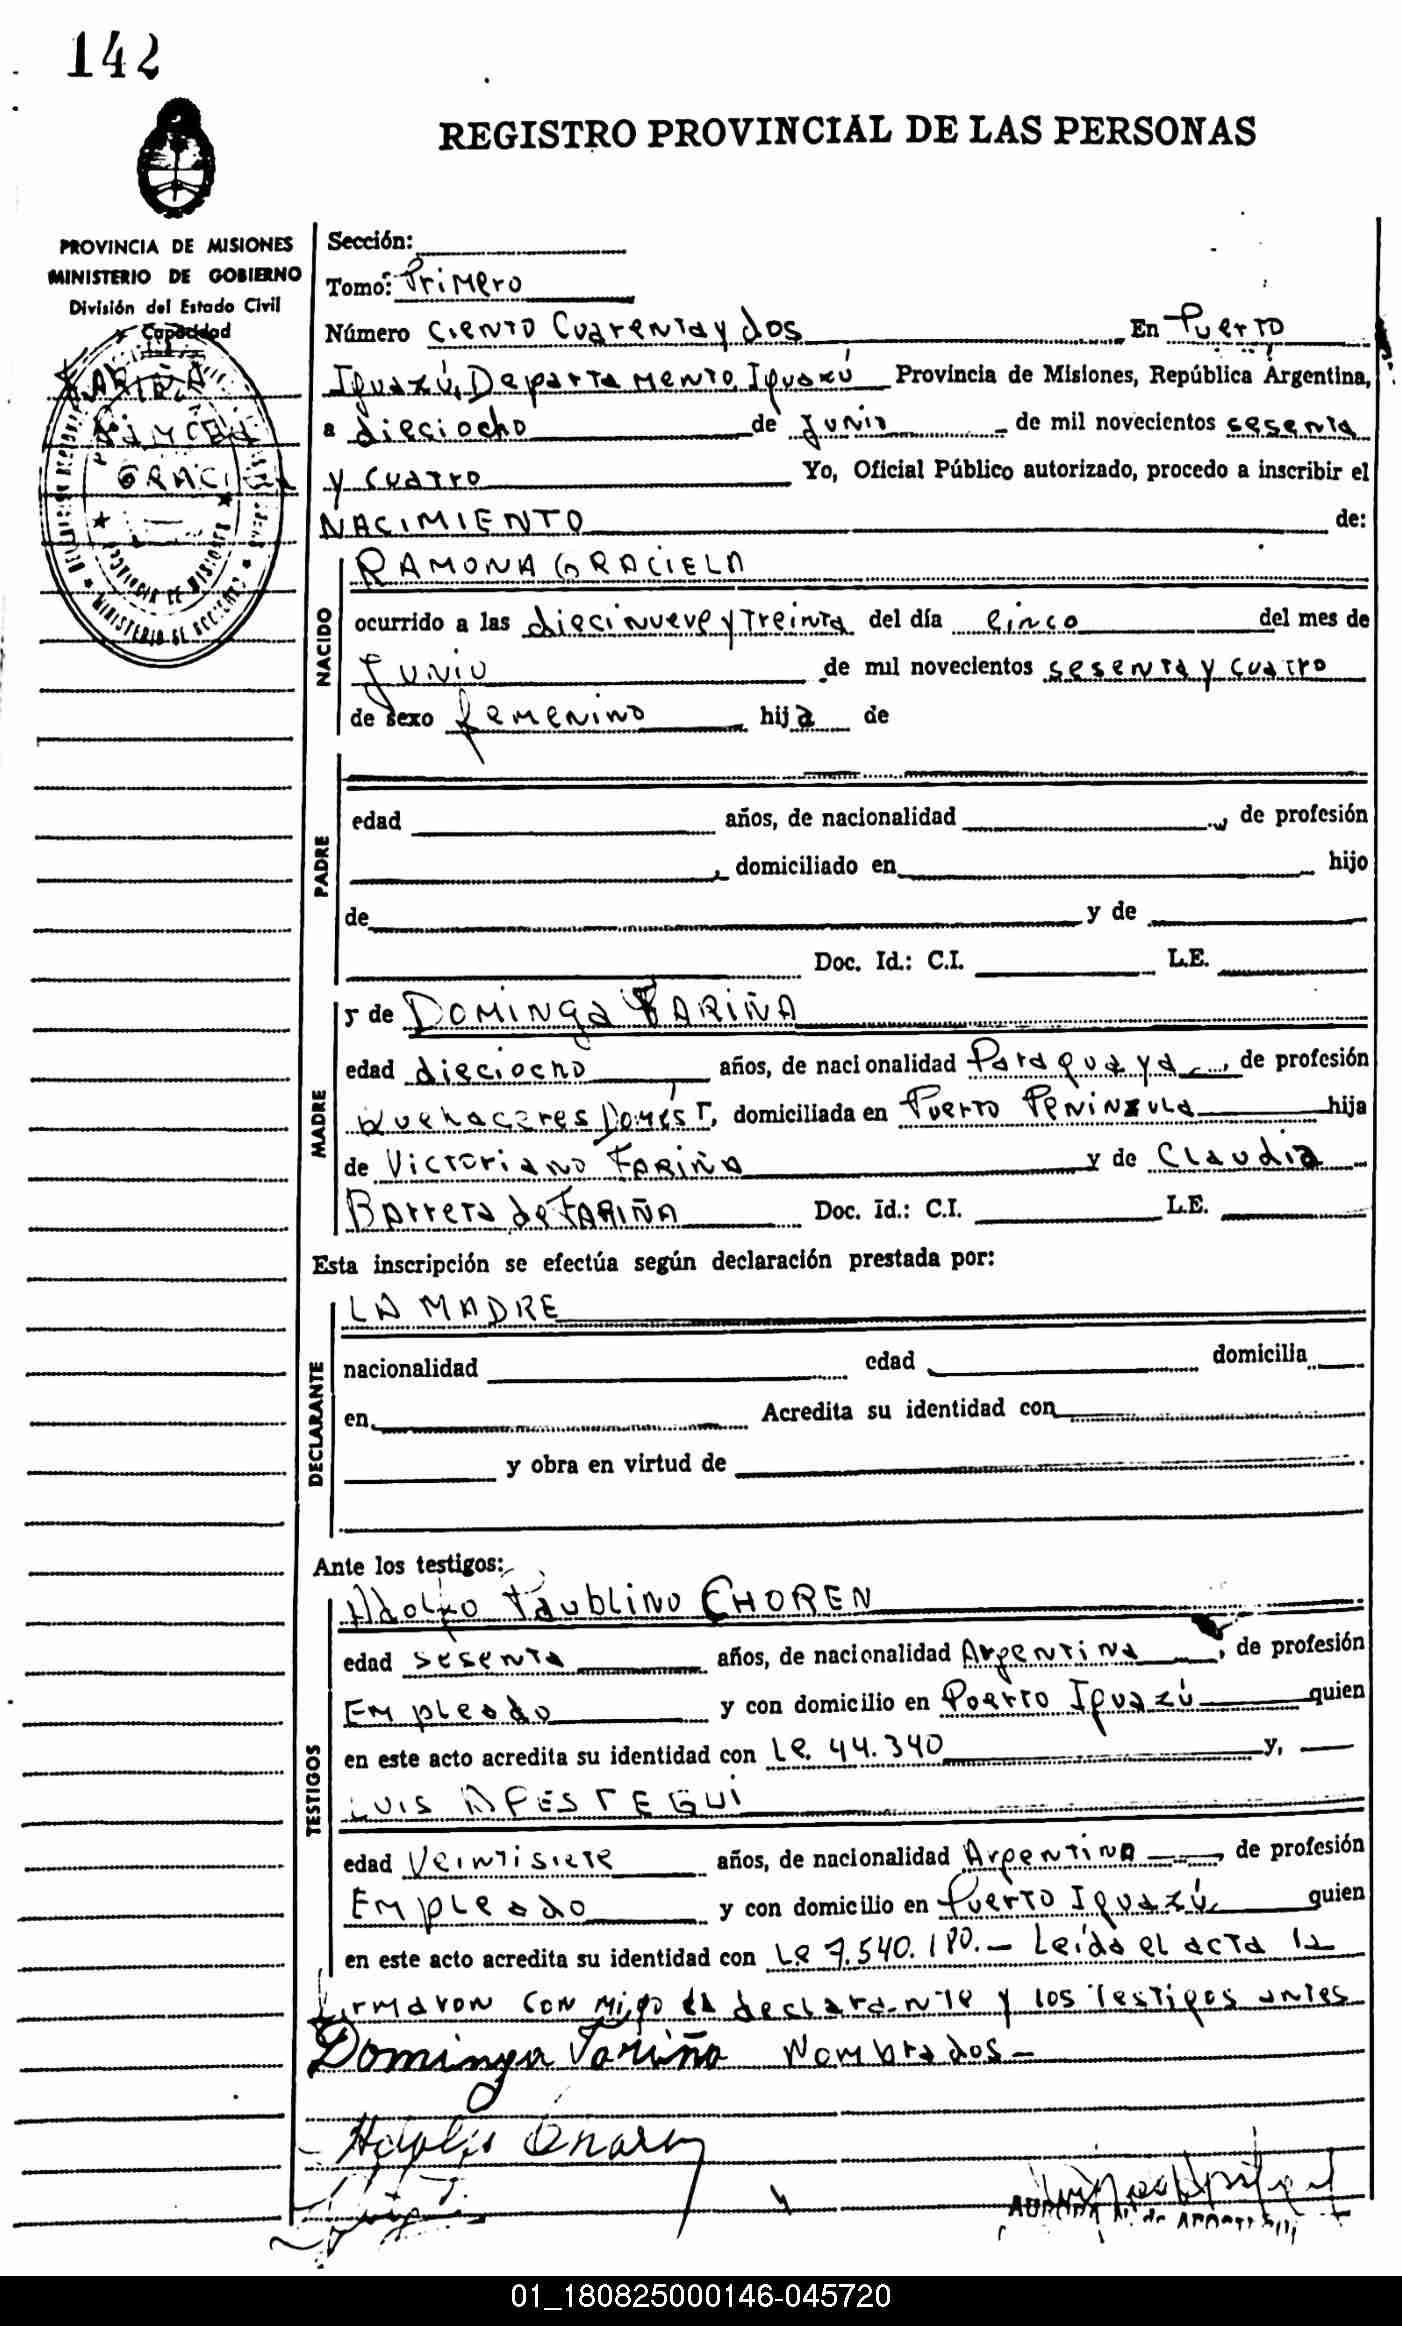 142
REGISTRO PROVINCIAL DE LAS PERSONAS
PROVINCIA DE MISIONES
MINISTERIO DE GOBIERNO
División del Estado Civil
y Capacidad
FARIÑA
GRACIELA
PROVINCIA DE MISIONES
Sección:
Tomo: Primero
Número Ciento Cuarenta y dos En Puerto
Iguazú, Departamento Iguazú Provincia de Misiones, República Argentina,
a dieciocho de Junio de mil novecientos sesenta
y cuatro Yo, Oficial Público autorizado, procedo a inscribir el
NACIMIENTO de:
NACIDO
RAMONA GRACIELA
ocurrido a las diecinueve y treinta del día cinco del mes de
Junio de mil novecientos sesenta y cuatro
de sexo femenino hija de
PADRE
edad años, de nacionalidad , de profesión
, domiciliado en hijo
de y de
Doc. Id.: C.I. L.E.
MADRE
y de Dominga FARIÑA
edad dieciocho años, de nacionalidad Paraguaya , de profesión
Quehaceres Domést, domiciliada en Puerto Peninzula hija
de Victoriano FARIÑA y de Claudia
Barrera de FARIÑA Doc. Id.: C.I. L.E.
Esta inscripción se efectúa según declaración prestada por:
DECLARANTE
LA MADRE
nacionalidad edad domicilia
en Acredita su identidad con
y obra en virtud de
Ante los testigos:
TESTIGOS
Adolfo Paublino CHOREN
edad sesenta años, de nacionalidad Argentina , de profesión
Empleado y con domicilio en Poerto Iguazú quien
en este acto acredita su identidad con Le. 44.340 y,
LUIS APESTEGUI
edad Veintisiete años, de nacionalidad Argentina , de profesión
Empleado y con domicilio en Puerto Iguazú, quien
en este acto acredita su identidad con Le 7.540.180.- Leída el acta la
firmaron con migo la declarante y los Testigos antes
Dominga Fariña Nombrados-
Adolfo
01_180825000146-045720